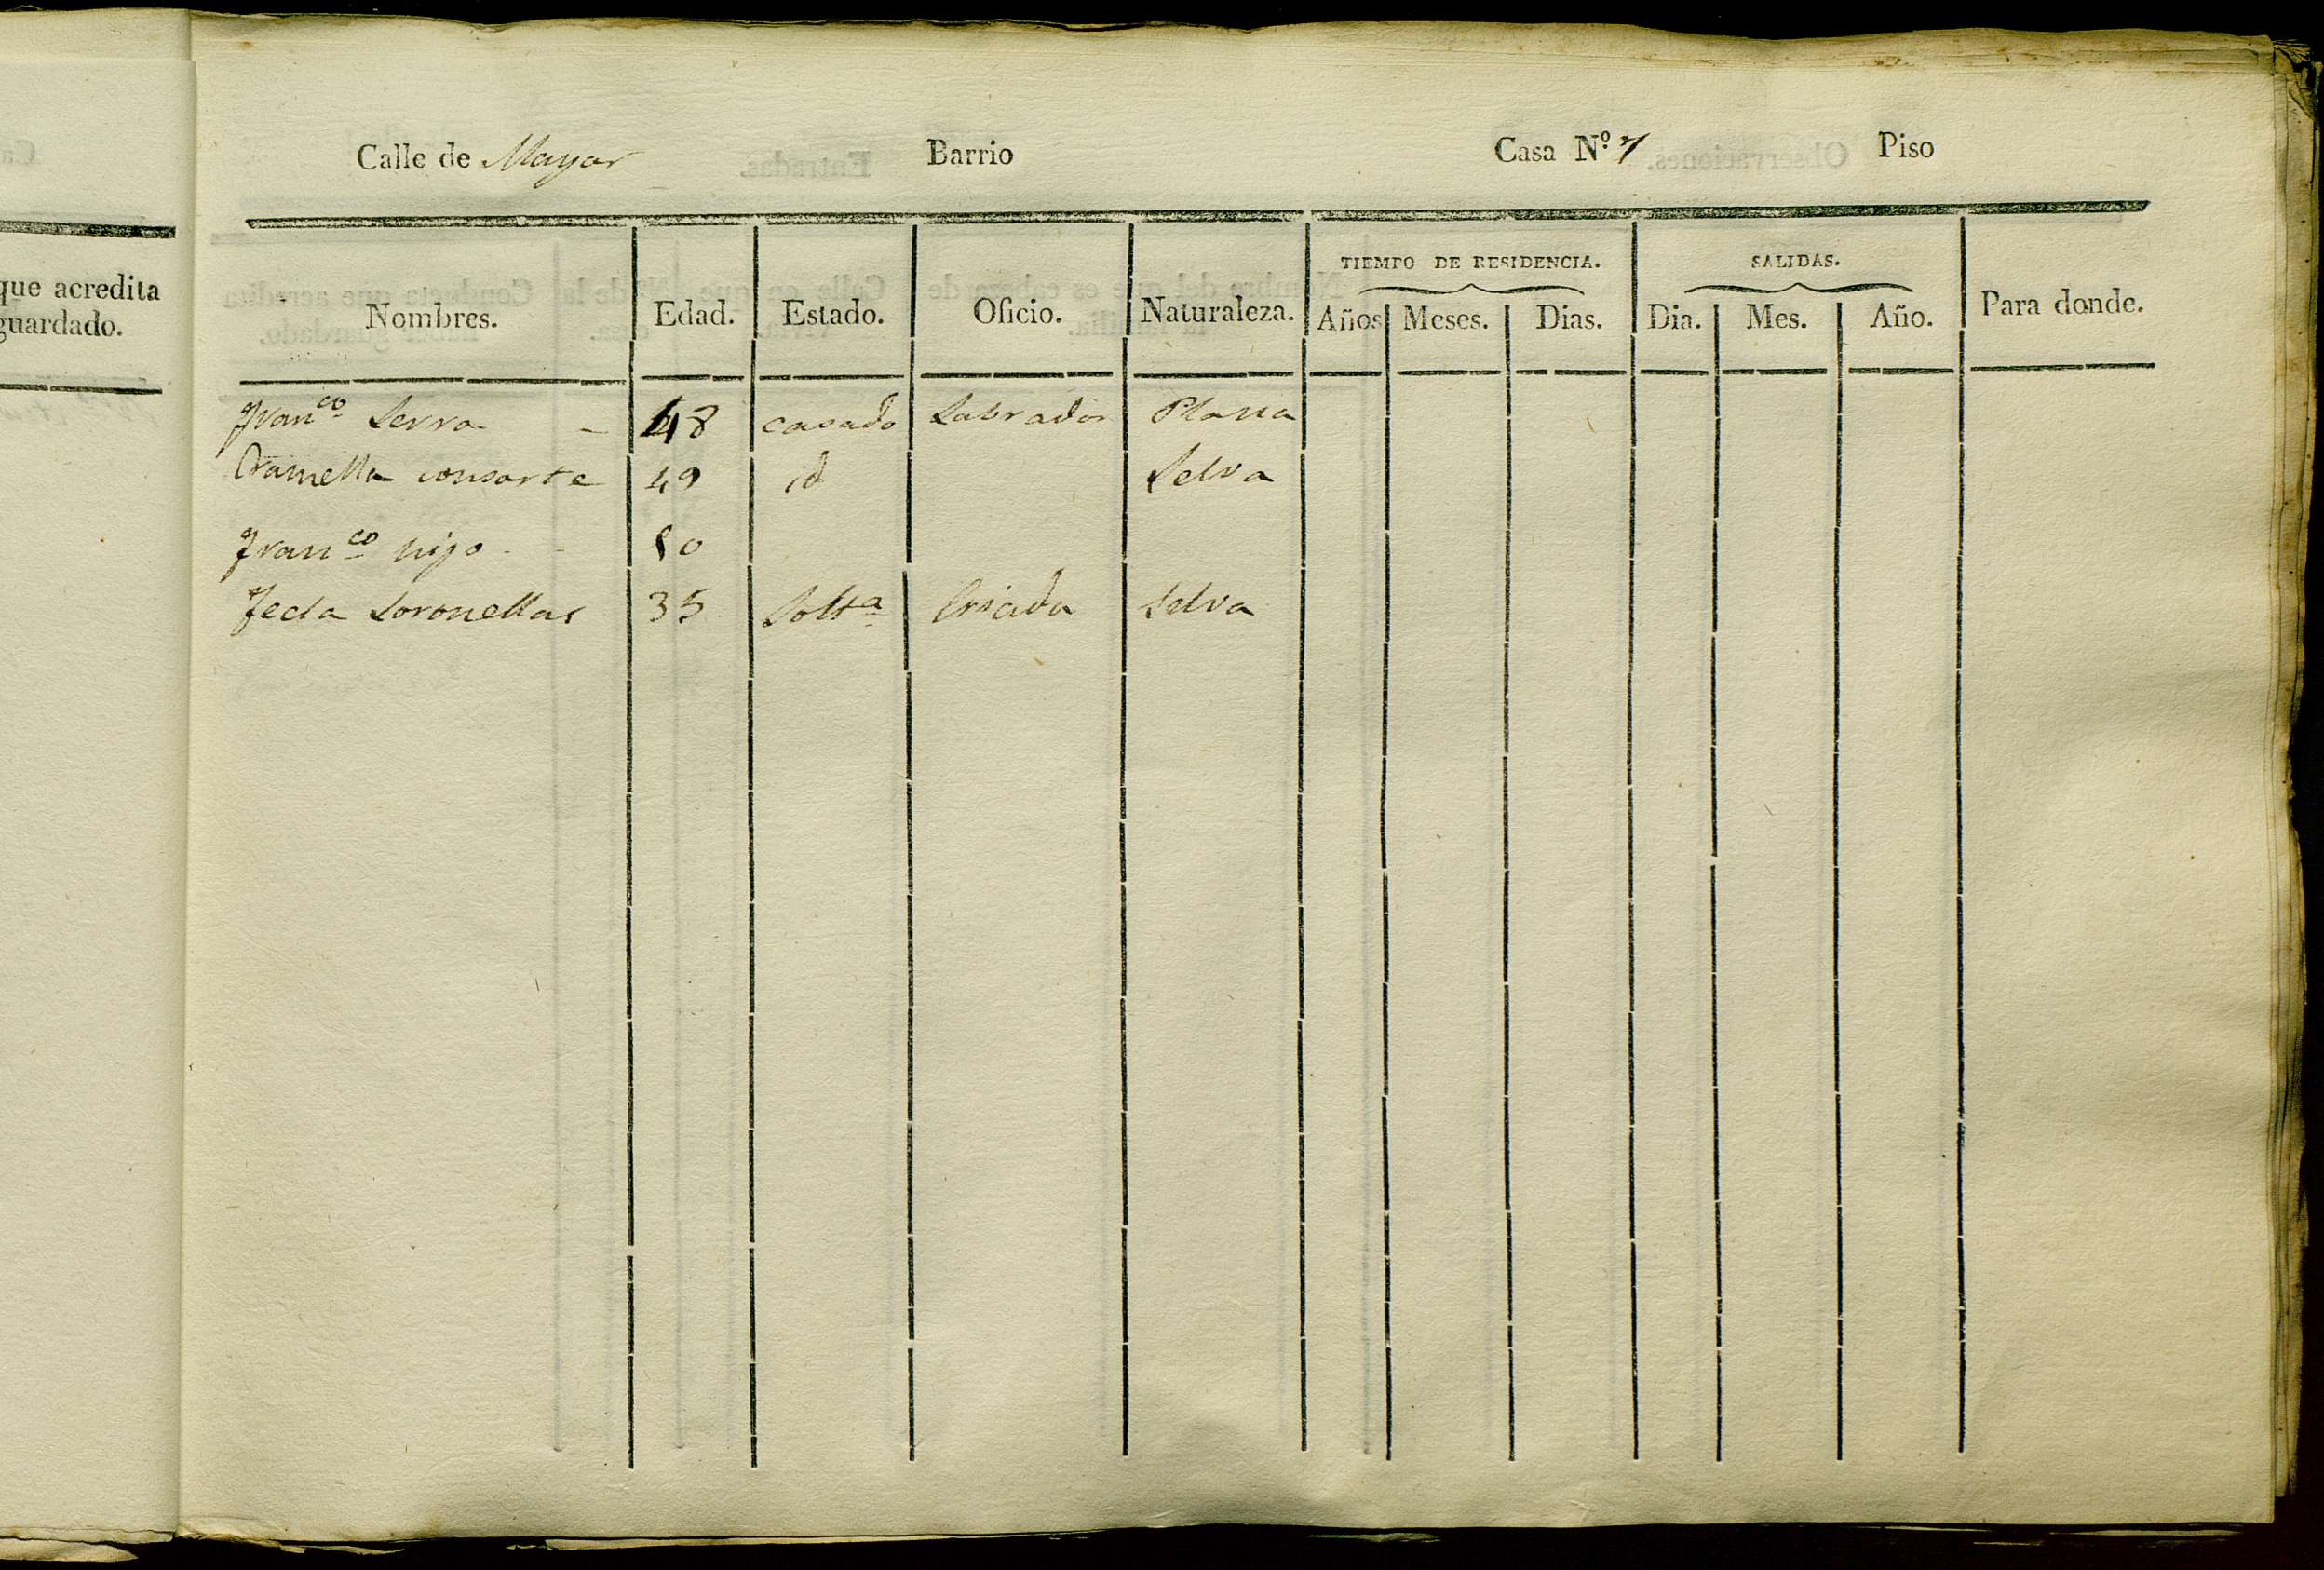 que acredita
guardado.
Calle de Mayor Barrio Casa Nº 7 Piso
TIEMPO DE RESIDENCIA. SALIDAS.
Nombres. Edad. Estado. Oficio. Naturaleza. Años Meses. Dias. Dia. Mes. Año. Para donde.
Franco Serra 48 casado Labrador Plana
consorte 49 id Selva
Franco hijo 10
Tecla Loronellas 35 Solta Criada Selva